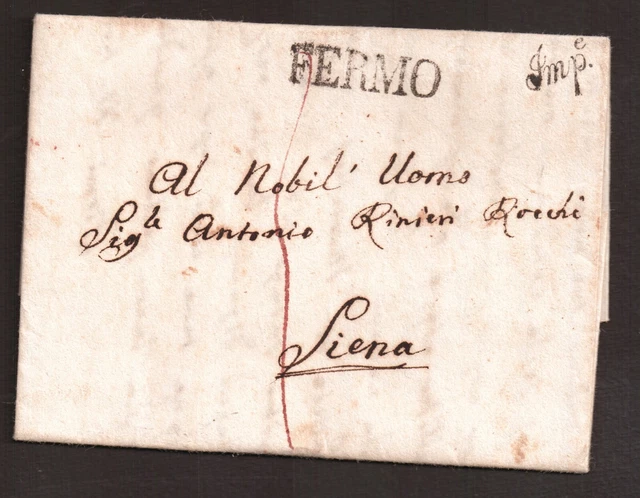 FERMO
Impe.
Al Nobil' Uomo
Sigle Antonio Rinieri Rocchi
Siena